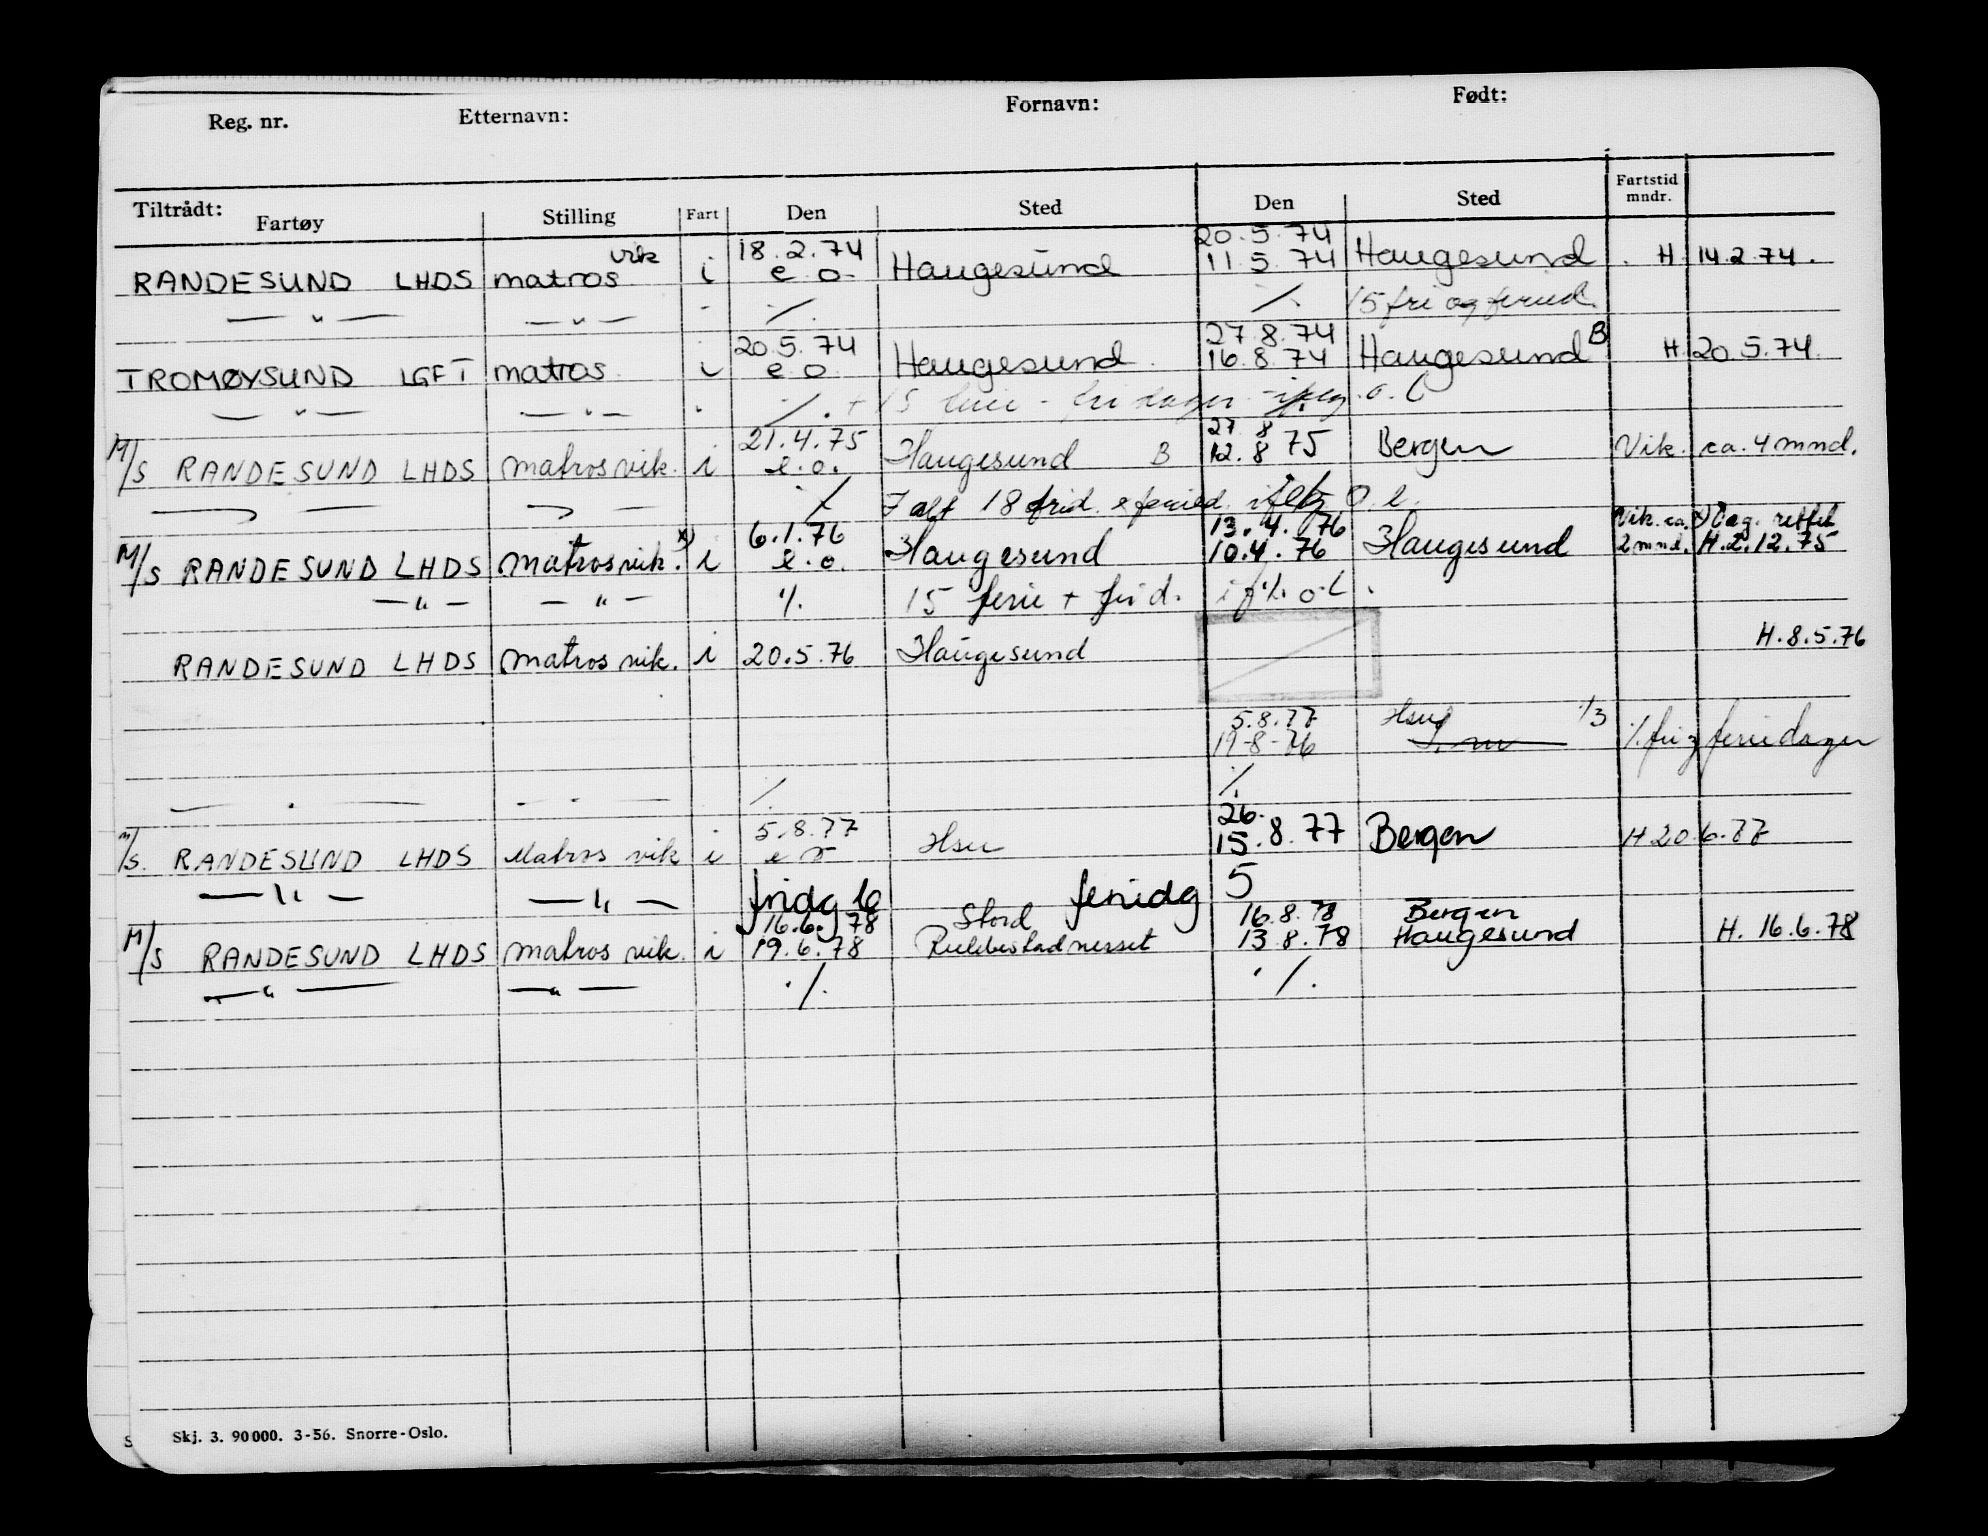 Reg. nr. Etternavn: Fornavn: Født:
Tiltrådt: Fartøy Stilling Fart Den Sted Den Sted Fartstid mndr.
vik 18.2.74 20.5.74
RANDESUND LHDS matros i e.o. Haugesund 11.5.74 Haugesund H. 14.2.74.
— " — — " — - ٪. ٪. 15 fri og feried.
20.5.74 27.8.74 B
TROMØYSUND LGFT matros i e.o. Haugesund 16.8.74 Haugesund H. 20.5.74.
— " — — " — ٪. + 15 ferie - fridager o.l.
21.4.75 27 8
M/S RANDESUND LHDS matros vik. i e.o. Haugesund B 12.8 75 Bergen Vik. ca. 4 mnd.
٪ I alt 18 frid. & feried. o.l.
x) 6.1.76 13.4.76 Vik. ca. x) Dag. rettet
M/S RANDESUND LHDS matros vik. i e.o. Haugesund 10.4.76 Haugesund 2 mnd. H.2.12.75
— " — — " — ٪. 15 ferie + frid. o.l.
H.8.5.76
RANDESUND LHDS matros vik. i 20.5.76 Haugesund
5.8.77 Hsu 1/3
19-8-76 ٪. fri og feriedager
٪. ٪.
5.8.77 26.
M/S. RANDESUND LHDS Matros vik i e o Hsu 15.8.77 Bergen H 20.6.77
— " — — " — fridg 16 feriedg 5
16.6.78 Stord 16.8.78 Bergen
M/S RANDESUND LHDS matros vik. i 19.6.78 13.8.78 Haugesund H. 16.6.78
— " — — " — ٪. ٪.
Skj. 3. 90000. 3-56. Snorre-Oslo.